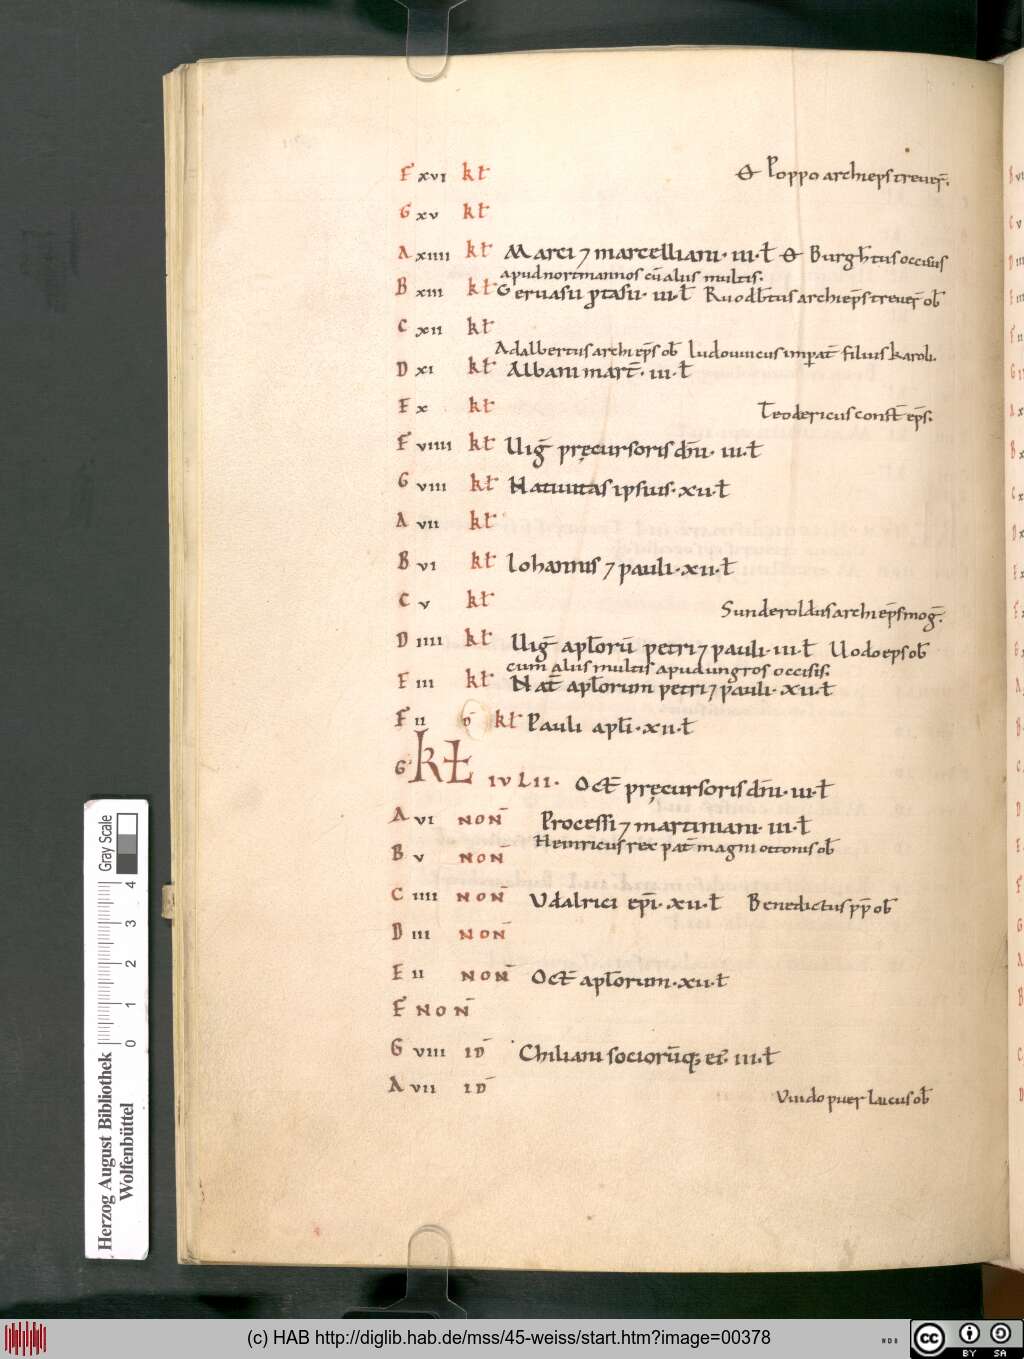 F xvi kł & Poppo archieps treueṝ.
G xv kł
A xiiii kł Marci ⁊ marcelliani · iii · ł & Burgh̄tus occisus
apud nortmannos cū aliis multis.
B xiii kł Geruasii ꝓtasii · iii · ł Ruodb̄tus archiep̄s treueṝ ob̄
C xii kł
Adalbertus archiep̄s ob̄ Ludouuicus imꝑat̄ filius karoli.
D xi kł Albani mart̄ · iii · ł
E x kł Teodericus const̄ ep̄s.
F viiii kł Uig̅ pręcursoris dn̄i · iii · ł
G viii kł Natiuitas ipsius · xii · ł
A vii kł
B vi kł Iohannis ⁊ pauli · xii · ł
C v kł Sunderoldus archiep̄s mog̅.
D iiii kł Uig̅ apłorū petri ⁊ pauli · iii · ł Uodo eps ob̄
cum aliis multis apud ungros occisis.
E iii kł Nat̄ apłorum petri ⁊ pauli · xii · ł
F ii kł Pauli apłi · xii · ł
G KŁ IVLII · Oct̄ pręcursoris dn̄i · iii · ł
A vi NON̄ Processi ⁊ martiniani · iii · ł
Heinricus rex pat̄ magni ottonis ob̄
B v NON̄
C iiii NON̄ Udalrici ep̄i · xii · ł Benedictus pp̄ ob̄
D iii NON̄
E ii NON̄ Oct̄ apłorum · xii · ł
F NON̄
G viii ID̄ Chiliani sociorūq; ei᾽. iii · ł
A vii ID̄ Uuido puer Laicus ob̄
Gray Scale
4 3 2 1 0
Herzog August Bibliothek
Wolfenbüttel
(c) HAB http://diglib.hab.de/mss/45-weiss/start.htm?image=00378
WDB
cc BY SA